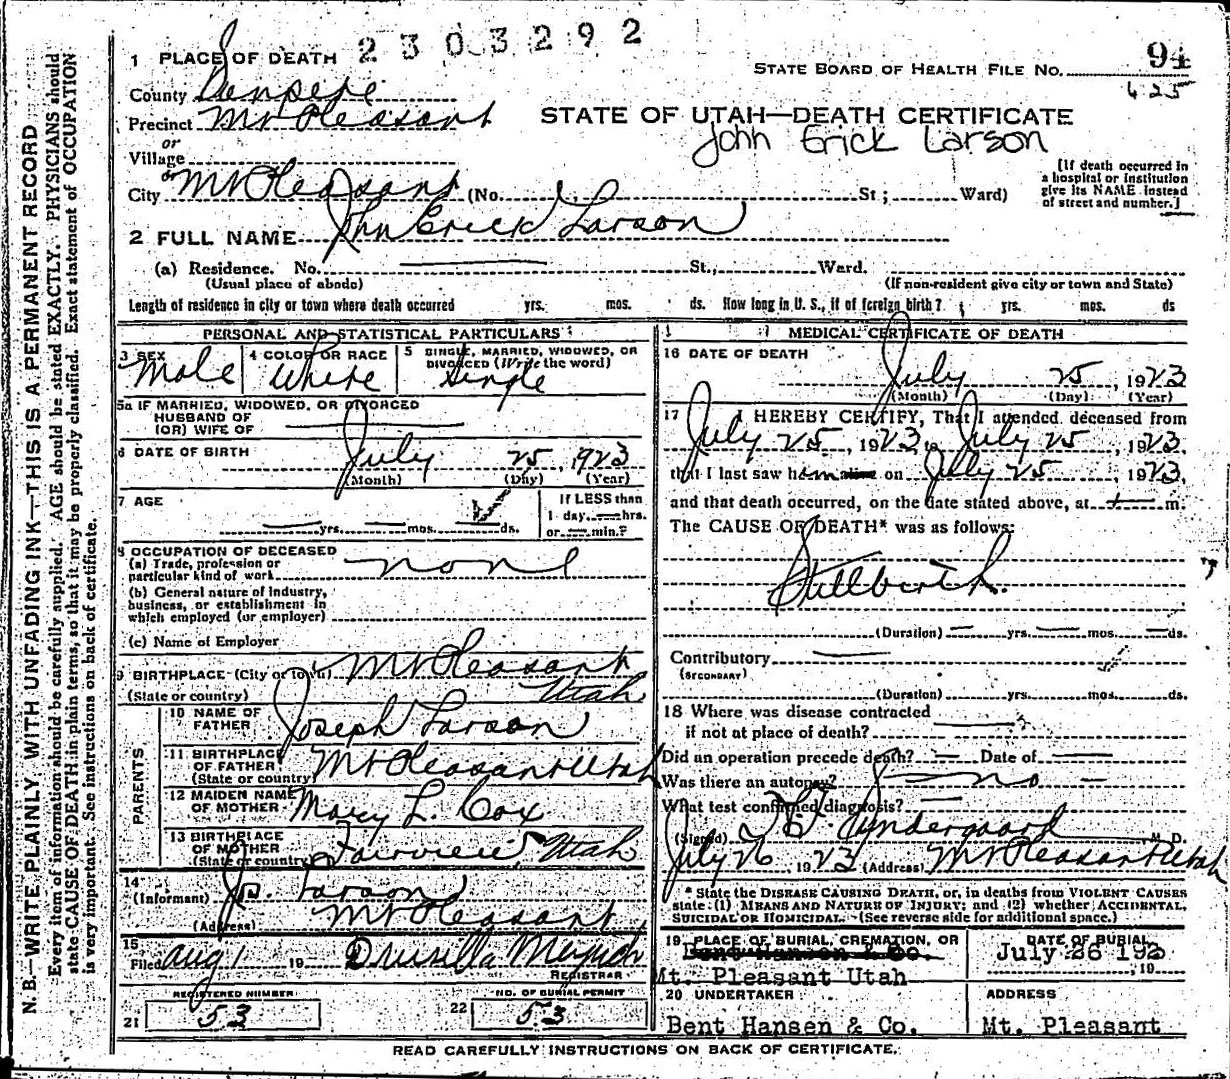 2303292
1 PLACE OF DEATH
STATE BOARD OF HEALTH FILE NO. 94
625
County Sanpete
Precinct Mt Pleasant
STATE OF UTAH—DEATH CERTIFICATE
John Erick Larson
or
Village
or
City Mt Pleasant (No. St; Ward)
[If death occurred in a hospital or institution give its NAME instead of street and number.]
2 FULL NAME John Erick Larson
(a) Residence. No. St., Ward.
(Usual place of abode) (If non-resident give city or town and State)
Length of residence in city or town where death occurred yrs. mos. ds. How long in U. S., if of foreign birth? yrs. mos. ds
PERSONAL AND STATISTICAL PARTICULARS
3 SEX
Male
4 COLOR OR RACE
White
5 SINGLE, MARRIED, WIDOWED, OR DIVORCED (Write the word)
Single
5a IF MARRIED, WIDOWED, OR DIVORCED
HUSBAND OF
(OR) WIFE OF
6 DATE OF BIRTH
July 25 1923
(Month) (Day) (Year)
7 AGE
yrs. mos. ds.
If LESS than
1 day, hrs.
or min.?
8 OCCUPATION OF DECEASED
(a) Trade, profession or
particular kind of work none
(b) General nature of industry,
business, or establishment in
which employed (or employer)
(c) Name of Employer
9 BIRTHPLACE (City or town) Mt Pleasant
(State or country) Utah
PARENTS
10 NAME OF
FATHER Joseph Larson
11 BIRTHPLACE
OF FATHER
(State or country) Mt Pleasant Utah
12 MAIDEN NAME
OF MOTHER Mary L. Cox
13 BIRTHPLACE
OF MOTHER
(State or country) Fairview, Utah
14
(Informant) Jos. Larson
(Address) Mt Pleasant
15
Filed Aug 1 19 Drusilla
REGISTRAR
REGISTERED NUMBER
21 53
NO. OF BURIAL PERMIT
22 53
MEDICAL CERTIFICATE OF DEATH
16 DATE OF DEATH
July 25, 1923
(Month) (Day) (Year)
17 I HEREBY CERTIFY, That I attended deceased from
July 25, 1923, to July 25, 1923,
that I last saw him alive on July 25, 1923,
and that death occurred, on the date stated above, at m.
The CAUSE OF DEATH* was as follows:
Stillbirth.
(Duration) yrs. mos. ds.
Contributory
(SECONDARY)
(Duration) yrs. mos. ds.
18 Where was disease contracted
if not at place of death?
Did an operation precede death? Date of
Was there an autopsy? no
What test confirmed diagnosis?
(Signed) Lyndergaard M. D.
July 26, 1923 (Address) Mt Pleasant Utah
* State the DISEASE CAUSING DEATH, or, in deaths from VIOLENT CAUSES
state (1) MEANS AND NATURE OF INJURY; and (2) whether ACCIDENTAL,
SUICIDAL or HOMICIDAL. (See reverse side for additional space.)
19 PLACE OF BURIAL, CREMATION, OR
Bent Hansen & Co.
Mt. Pleasant Utah
DATE OF BURIAL
July 26 192
, 19
20 UNDERTAKER
Bent Hansen & Co.
ADDRESS
Mt. Pleasant
READ CAREFULLY INSTRUCTIONS ON BACK OF CERTIFICATE.
N. B.—WRITE PLAINLY WITH UNFADING INK—THIS IS A PERMANENT RECORD
Every item of information should be carefully supplied. AGE should be stated EXACTLY. PHYSICIANS should
state CAUSE OF DEATH in plain terms, so that it may be properly classified. Exact statement of OCCUPATION
is very important. See instructions on back of certificate.